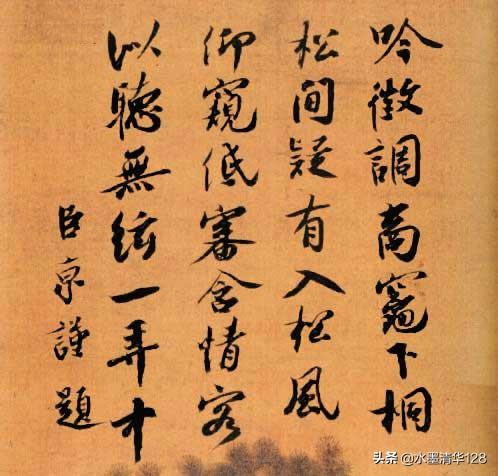 吟徵調商竈下桐
松間疑有入松風
仰窺低審含情客
似聽無絃一弄中
臣京謹題
头条 @水墨清华128